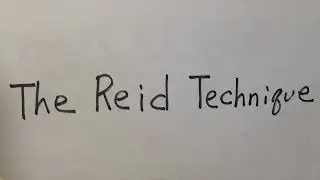 The Reid Technique